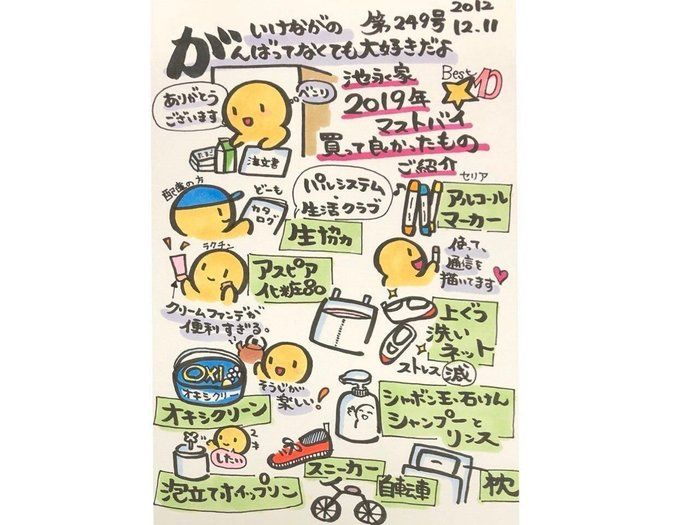 いけながの
がんばってなくても大好きだよ
第249号
2012
12.11
池永家
2019年
マストバイ
買って良かったもの
ご紹介
Best 10
ありがとう
ございます
べんり
注文書
たまご
配達の方
どーも
カタログ
パルシステム
・
生活クラブ
生協
セリア
アルコール
マーカー
使って、
通信を
描いてます
ラクチン
アスピア
化粧品
クリームファンデが
便利すぎる。
上ぐつ
洗い
ネット
ストレス減
OXI
オキシクリーン
オキシクリーン
そうじが
楽しい!
シャボン玉石けん
シャンプーと
リンス
したい
泡立てホイップリン
スニーカー
自転車
枕